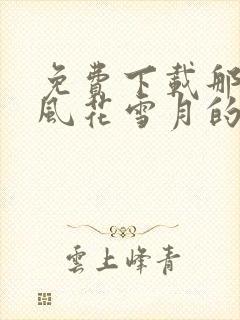 免費下載那
風花雪月的
雲上峰青